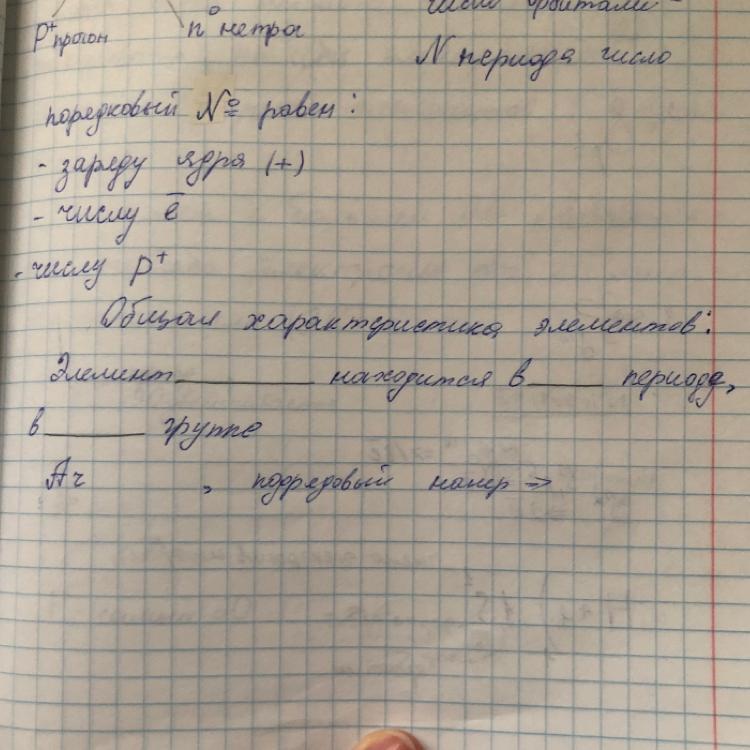 число орбиталей
p⁺ протон n⁰ нетро
N периода число
порядковый № равен:
- заряду ядра (+)
- числу ē
- числу p⁺
Общая характеристика элементов:
Элемент__________ находится в_____ периоде,
в_______ группе
Ar , подрядовый номер ⇒